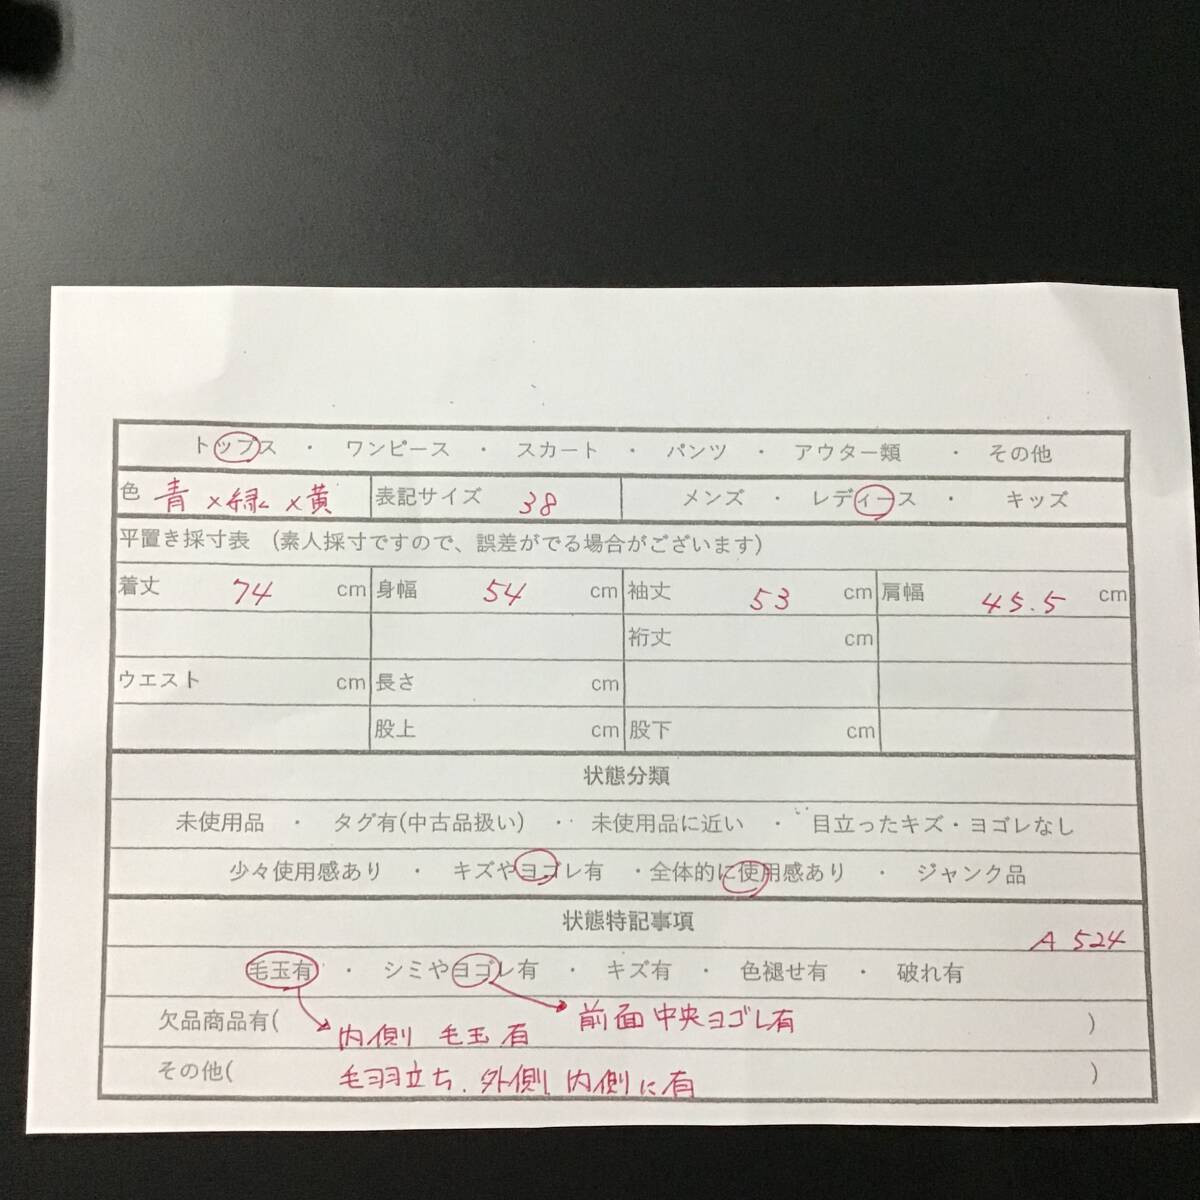 トップス ・ ワンピース ・ スカート ・ パンツ ・ アウター類 ・ その他
色 青×緑×黄 表記サイズ 38 メンズ ・ レディース ・ キッズ
平置き採寸表 (素人採寸ですので、誤差がでる場合がございます)
着丈 74 cm 身幅 54 cm 袖丈 53 cm 肩幅 45.5 cm
裄丈 cm
ウエスト cm 長さ cm
股上 cm 股下 cm
状態分類
未使用品 ・ タグ有(中古品扱い) ・ 未使用品に近い ・ 目立ったキズ・ヨゴレなし
少々使用感あり ・ キズやヨゴレ有 ・全体的に使用感あり ・ ジャンク品
状態特記事項
A 524
毛玉有 ・ シミやヨゴレ有 ・ キズ有 ・ 色褪せ有 ・ 破れ有
欠品商品有( 内側 毛玉有 前面中央ヨゴレ有 )
その他( 毛羽立ち、外側、内側に有 )